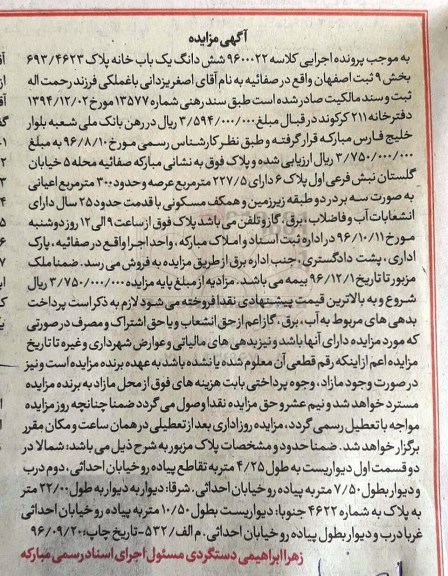 آگهی مزایده
به موجب پرونده اجرایی کلاسه ۹۶۰۰۰۲۲ شش دانگ یک باب خانه پلاک ۶۹۳/۴۶۲۳
بخش ۹ ثبت اصفهان واقع در صفائیه به نام آقای اصغر یزدانی باغملکی فرزند رحمت اله
ثبت و سند مالکیت صادر شده است طبق سند رهنی شماره ۱۳۵۷۷ مورخ ۱۳۹۴/۱۲/۰۲
دفترخانه ۲۱۱ کرکوند در قبال مبلغ ۳/۵۹۴/۰۰۰/۰۰۰ ریال در رهن بانک ملی شعبه بلوار
خلیج فارس مبارکه قرار گرفته و طبق نظر کارشناس رسمی مورخ ۹۶/۸/۱۰ به مبلغ
۳/۷۵۰/۰۰۰/۰۰۰ ریال ارزیابی شده و پلاک فوق به نشانی مبارکه صفائیه محله ۵ خیابان
گلستان نبش فرعی اول پلاک ۶ دارای ۲۲۷/۵ مترمربع عرصه وحدود ۳۰۰ مترمربع اعیانی
به صورت سه بر در دو طبقه زیرزمین و همکف مسکونی با قدمت حدود ۲۵ سال دارای
انشعابات آب و فاضلاب، برق، گاز و تلفن می باشد پلاک فوق از ساعت ۹ الی ۱۲ روز دوشنبه
مورخ ۹۶/۱۰/۱۱ در اداره ثبت اسناد و املاک مبارکه، واحد اجرا واقع در صفائیه، پارک
اداری، پشت دادگستری، جنب اداره برق از طریق مزایده به فروش می رسد. ضمنا ملک
مزبور تا تاریخ ۹۶/۱۲/۱ بیمه می باشد. مزادیه از مبلغ پایه مزایده ۳/۷۵۰/۰۰۰/۰۰۰ ریال
شروع و به بالاترین قیمت پیشنهادی نقدا فروخته می شود لازم به ذکر است پرداخت
بدهی های مربوط به آب، برق، گاز اعم از حق انشعاب و یا حق اشتراک و مصرف در صورتی
که مورد مزایده دارای آنها باشد و نیز بدهی های مالیاتی و عوارض شهرداری و غیره تا تاریخ
مزایده اعم از اینکه رقم قطعی آن معلوم شده یا نشده باشد به عهده برنده مزایده است و نیز
در صورت وجود مازاد، وجوه پرداختی بابت هزینه های فوق از محل مازاد به برنده مزایده
مسترد خواهد شد و نیم عشر و حق مزایده نقدا وصول می گردد ضمنا چنانچه روز مزایده
مواجه با تعطیل رسمی گردد، مزایده روز اداری بعد از تعطیلی در همان ساعت و مکان مقرر
برگزار خواهد شد. ضمنا حدود و مشخصات پلاک مزبور به شرح ذیل می باشد: شمالا در
دو قسمت اول دیواریست به طول ۴/۲۵ متر به تقاطع پیاده رو خیابان احداثی، دوم درب
و دیوار بطول ۷/۵۰ متر به پیاده رو خیابان احداثی. شرقا: دیوار به دیوار به طول ۲۲/۰۰ متر
به پلاک به شماره ۴۶۲۲ جنوبا: دیواریست بطول ۱۰/۵۰ متر به پیاده رو خیابان احداثی
غربا درب و دیوار بطول پیاده رو خیابان احداثی. م الف/ ۵۳۲- تاریخ چاپ: ۹۶/۰۹/۲۰
زهرا ابراهیمی دستگردی مسئول اجرای اسناد رسمی مبارکه